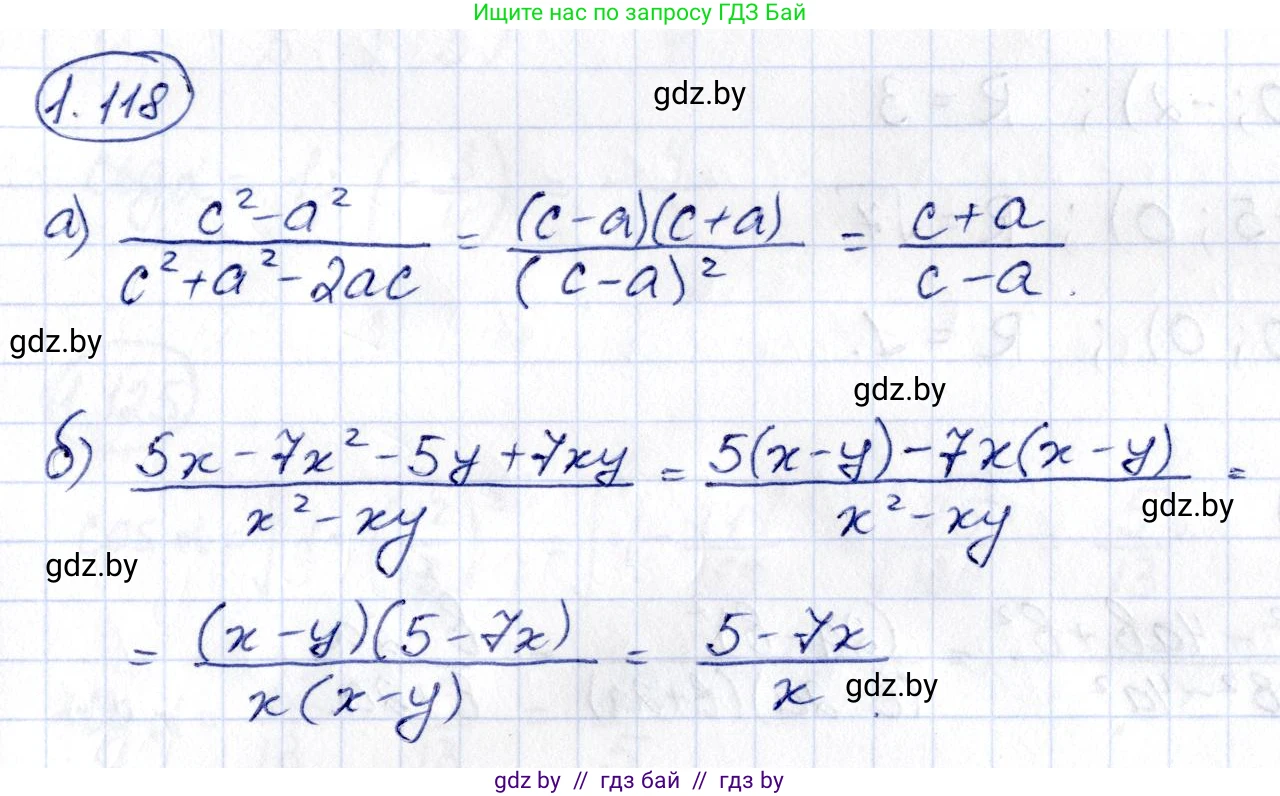 Ищите нас по запросу ГДЗ Бай
1.118
gdz.by
а) \frac{c²-a²}{c²+a²-2ac} = \frac{(c-a)(c+a)}{(c-a)²} = \frac{c+a}{c-a}.
gdz.by
gdz.by
б) \frac{5x-7x²-5y+7xy}{x²-xy} = \frac{5(x-y)-7x(x-y)}{x²-xy} =
gdz.by
gdz.by
= \frac{(x-y)(5-7x)}{x(x-y)} = \frac{5-7x}{x}.
gdz.by
gdz.by // гдз бай // гдз by